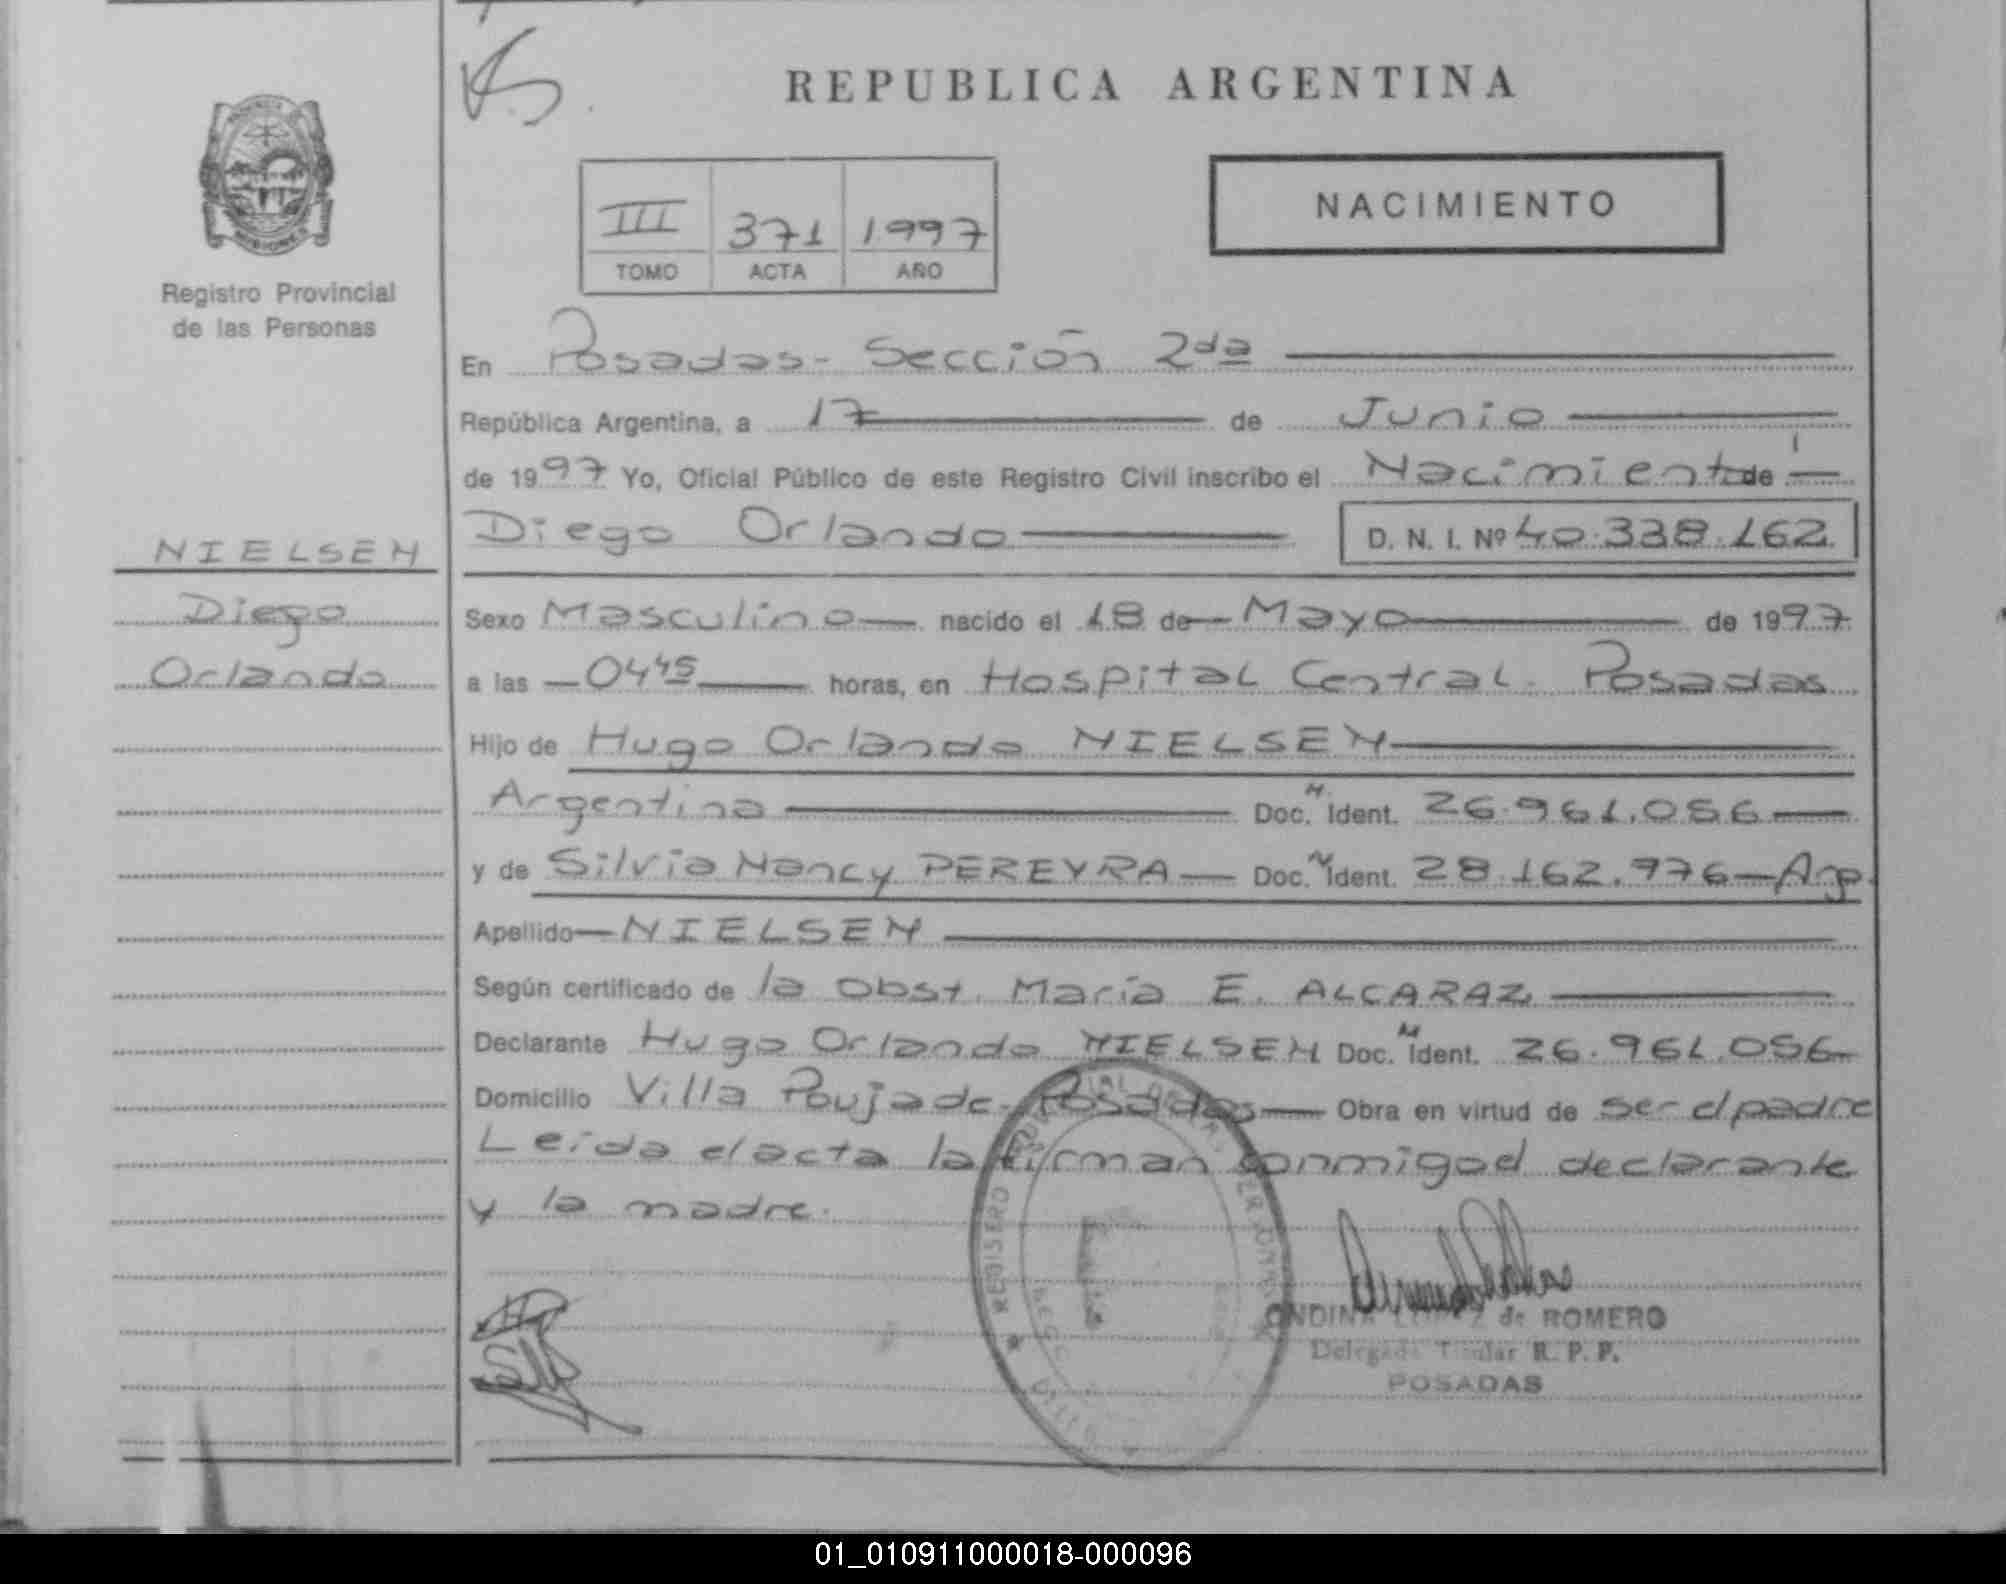 REPUBLICA ARGENTINA
NACIMIENTO
III 371 1997
TOMO ACTA AÑO
PROVINCIA
MISIONES
Registro Provincial
de las Personas
NIELSEN
Diego
Orlando
En Posadas - Sección 2da
República Argentina, a 17 de Junio
de 1997 Yo, Oficial Público de este Registro Civil inscribo el Nacimiento de
Diego Orlando D. N. I. Nº 40.338.162
Sexo Masculino nacido el 18 de Mayo de 1997
a las 0445 horas, en Hospital Central. Posadas
Hijo de Hugo Orlando NIELSEN
Argentina Doc. N. Ident. 26.961.056
y de Silvia Nancy PEREYRA Doc. N Ident. 28.162.976 - Arg.
Apellido NIELSEN
Según certificado de la Obst. María E. ALCARAZ
Declarante Hugo Orlando NIELSEN Doc. N Ident. 26.961.056
Domicilio Villa Poujade - Posadas Obra en virtud de ser el padre
Leída el acta la firman conmigo el declarante
y la madre.
ONDINA de ROMERO
Delegada Titular R. P. P.
POSADAS
01_010911000018-000096